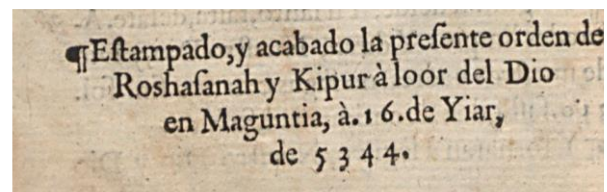 ¶Eſtampado,y acabado la preſente orden de
Roshaſanah y Kipur à loor del Dio
en Maguntia, à.16.de Yiar,
de 5344.